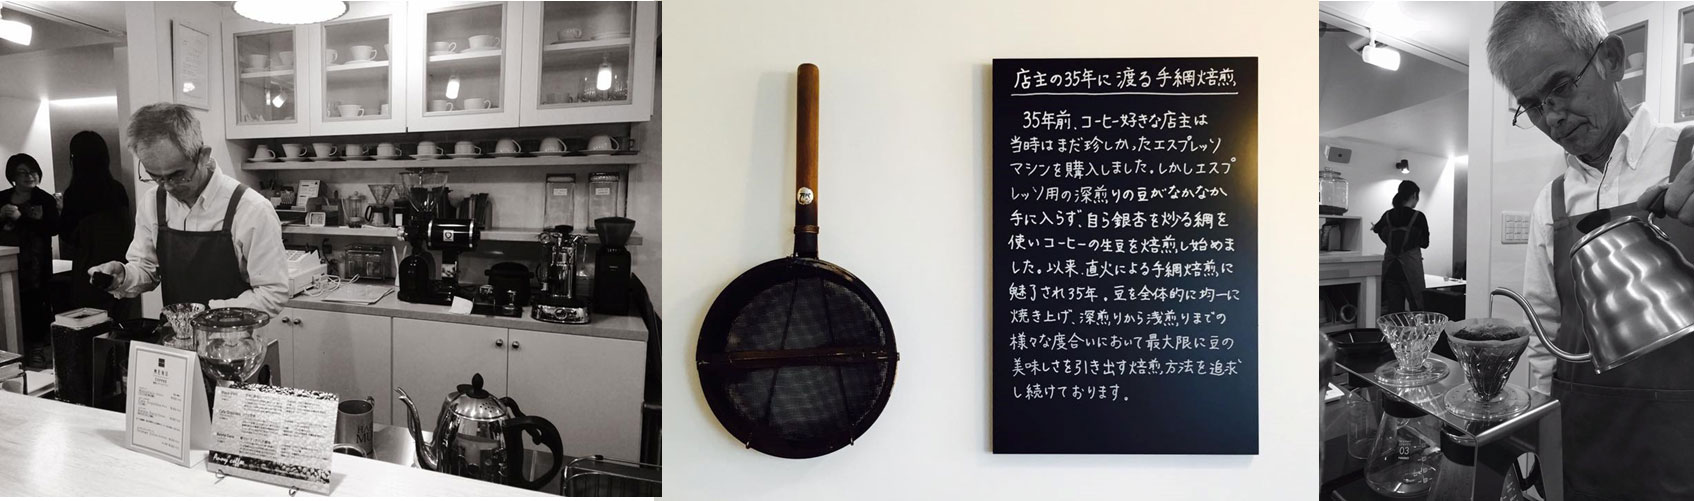 MENU
店主の35年に渡る手網焙煎
35年前、コーヒー好きな店主は
当時はまだ珍しかったエスプレッソ
マシンを購入しました。しかしエスプ
レッソ用の深煎りの豆がなかなか
手に入らず、自ら銀杏を炒る網を
使いコーヒーの生豆を焙煎し始めま
した。以来、直火による手網焙煎に
魅了され35年。豆を全体的に均一に
焼き上げ、深煎りから浅煎りまでの
様々な度合いにおいて最大限に豆の
美味しさを引き出す焙煎方法を追求
し続けております。
03